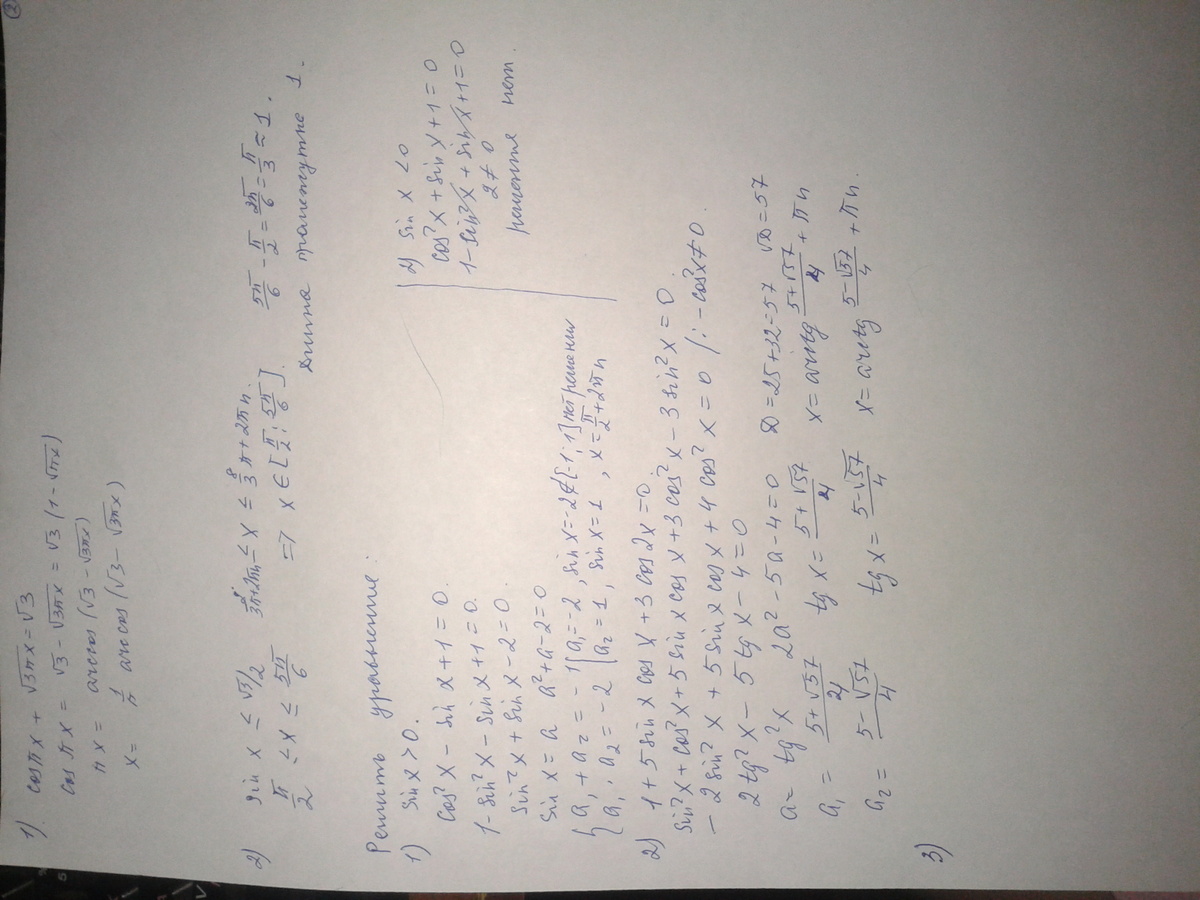 2
1) cos πx + √3πx = √3
cos πx = √3 - √3πx = √3 (1 - √πx)
πx = arccos (√3 - √3πx)
x = 1/π arccos (√3 - √3πx)
2) sin x ≤ √3/2
π/2 ≤ x ≤ 5π/6
π+2πn ≤ x ≤ 8/3 π + 2πn.
=> x ∈ [π/2; 5π/6].
5π/6 - π/2 = 2π/6 = π/3 ≈ 1.
Длина промежутке 1.
Решить уравнение.
1) sin x > 0.
cos²x - sin x + 1 = 0
1 - sin²x - sin x + 1 = 0.
sin²x + sin x - 2 = 0.
sin x = a a² + a - 2 = 0
{ a₁ + a₂ = -1 { a₁ = -2, sin x = -2 ∉ [-1; 1] нет решении
a₁ · a₂ = -2 a₂ = 1, sin x = 1, x = π/2 + 2πn
2) sin x < 0
cos²x + sin x + 1 = 0
1 - sin²x + sin x + 1 = 0
2 ≠ 0
решение нет.
2) 1 + 5 sin x cos x + 3 cos 2x = 0.
sin²x + cos²x + 5 sin x cos x + 3 cos²x - 3 sin²x = 0
- 2 sin²x + 5 sin x cos x + 4 cos²x = 0 /: -cos²x ≠ 0.
2 tg²x - 5 tg x - 4 = 0
a = tg²x 2a² - 5a - 4 = 0 D = 25 + 32 = 57 √D = 57
a₁ = 5+√57/4 tg x = 5+√57/4 x = arctg 5+√57/4 + πn
a₂ = 5-√57/4 tg x = 5-√57/4 x = arctg 5-√57/4 + πn.
3)